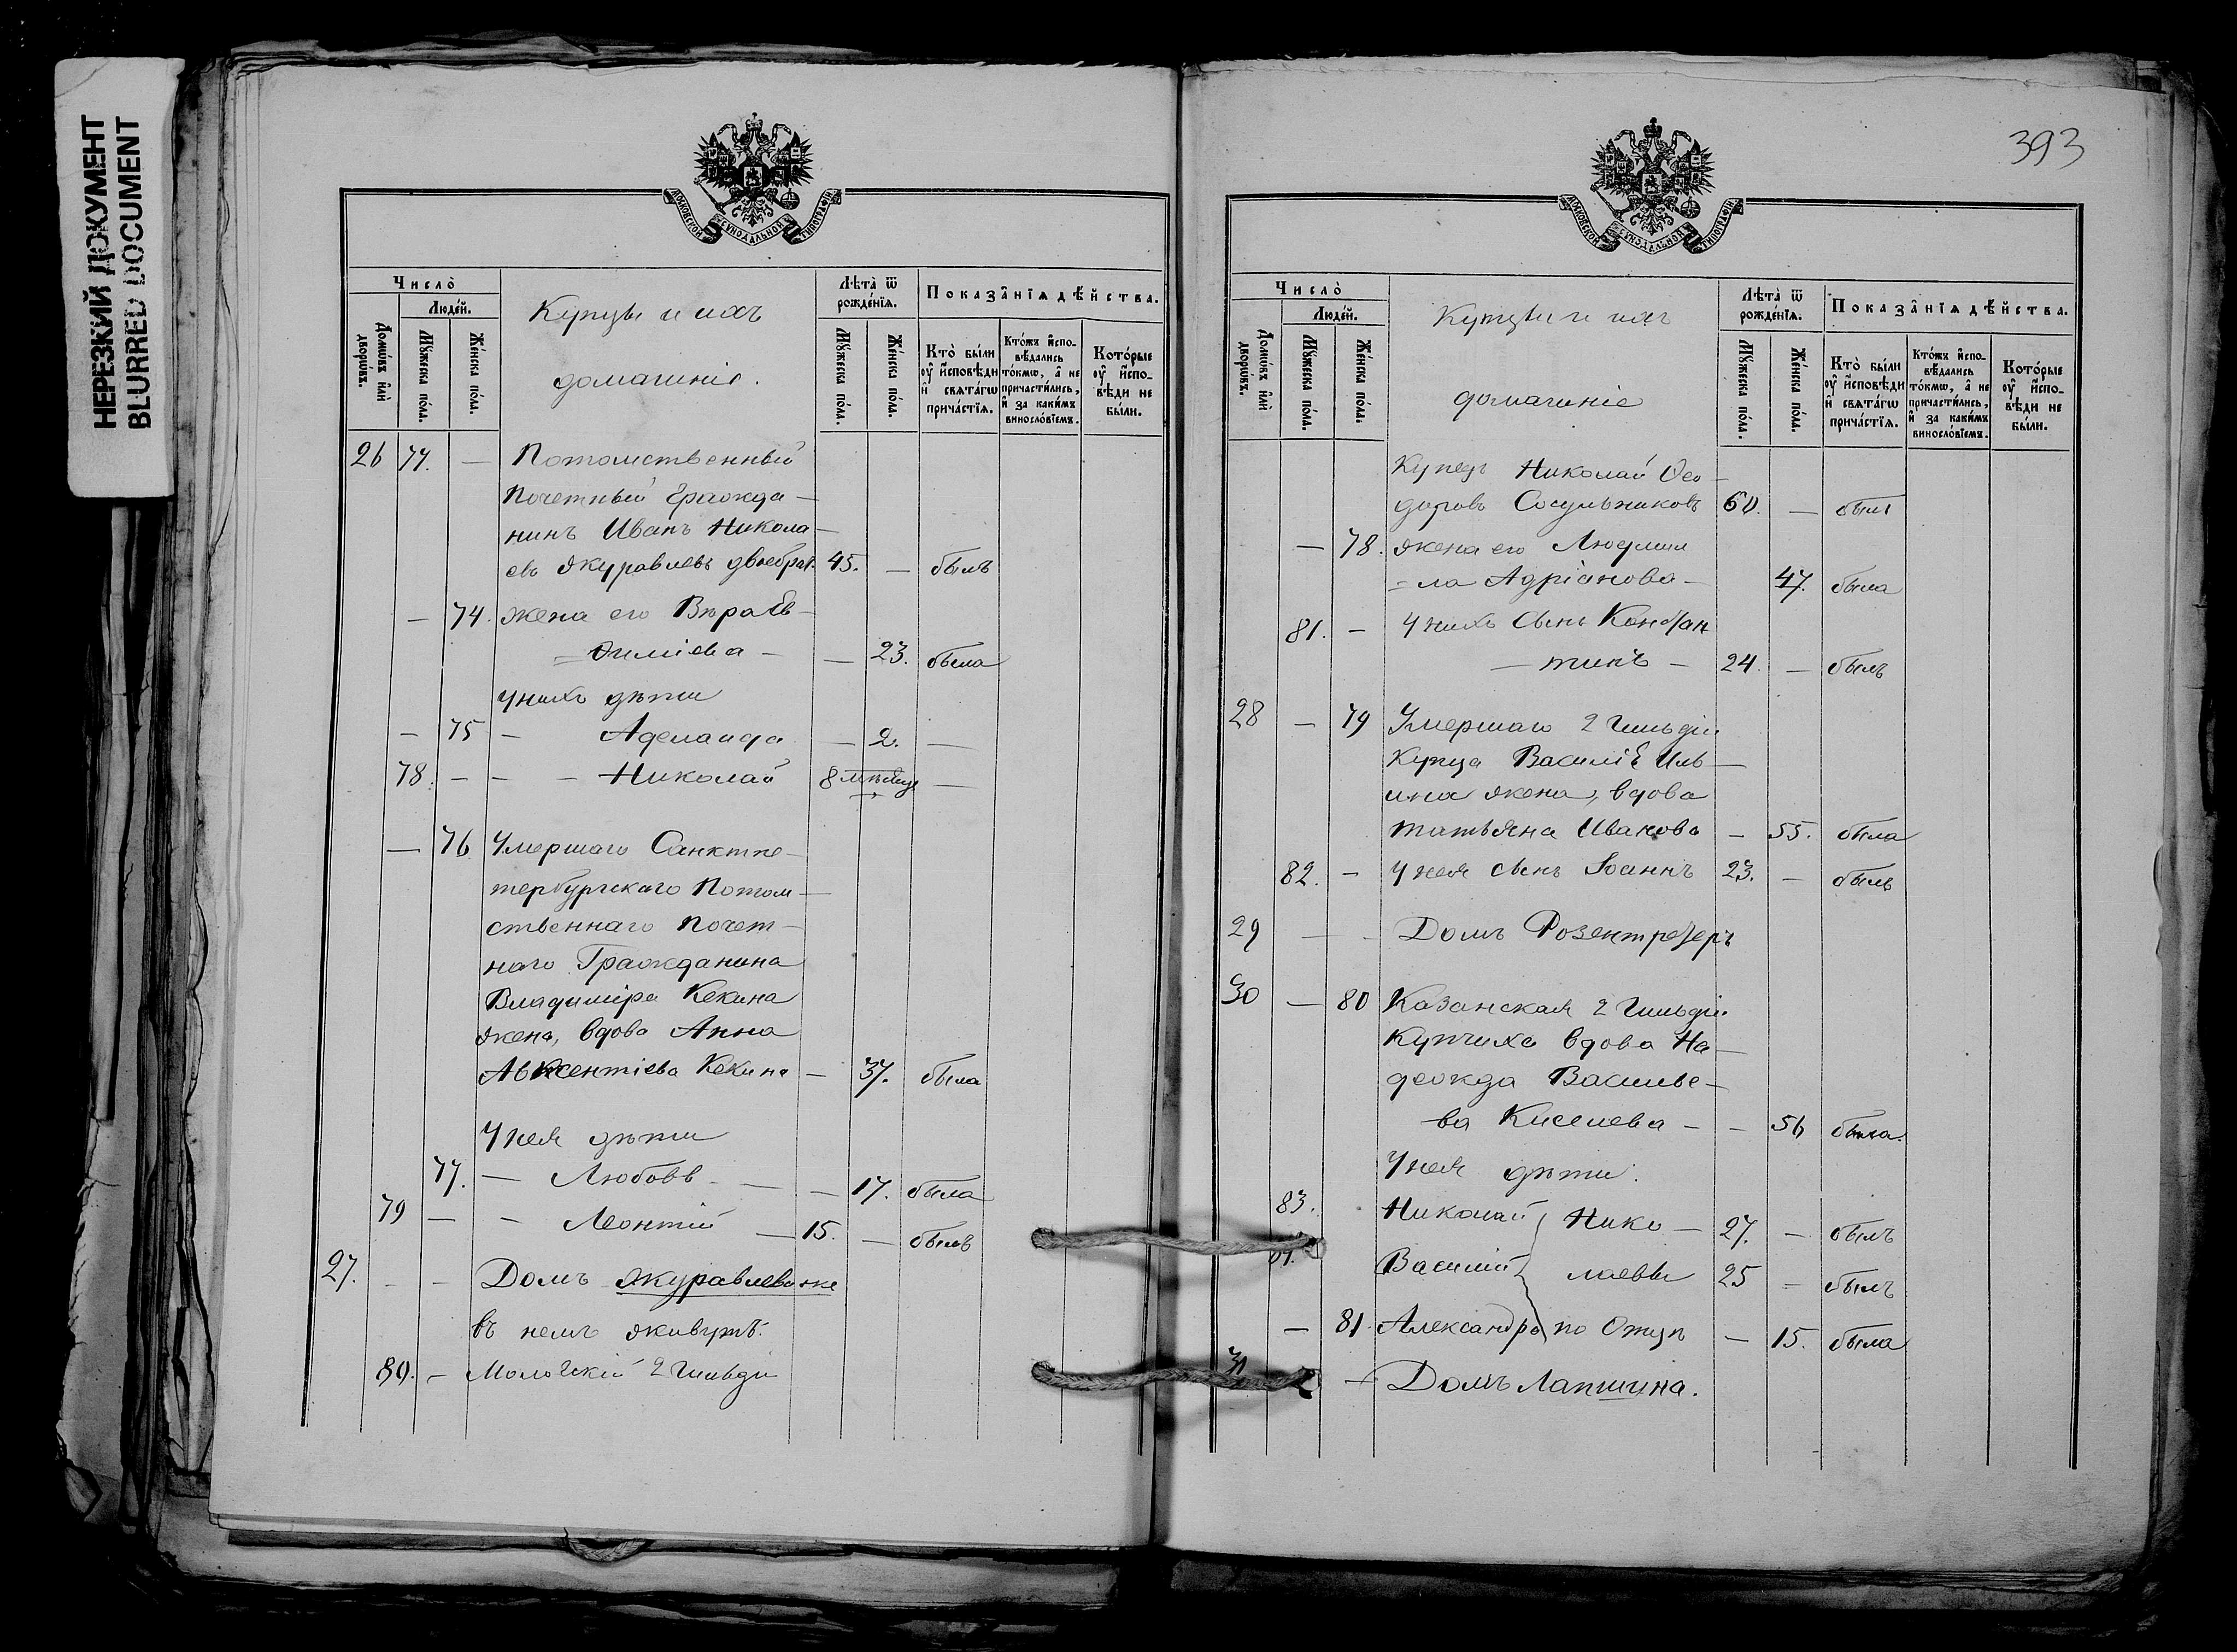 НЕРЕЗКИЙ ДОКУМЕНТ
BLURRED DOCUMENT
МОСКОВСКОЙ СѴНОДАЛЬНОЙ ТИПОГРАФІИ
Число̀
Люде́й.
Домѡ́въ и҆лѝ дворѡ́въ.
Мꙋ́жеска по́ла.
Же́нска по́ла.
Купцы и ихъ
домашніе.
Лѣта̀ ѿ рожде́нїѧ.
Мꙋ́жеска по́ла.
Же́нска по́ла.
Показа̂нїѧ дѣ́йства.
Кто̀ бы́ли ᲂу҆ и҆сповѣ́ди и҆ свѧта́гѡ прича́стїѧ.
Кто́жъ и҆спо-вѣ́дались то́кмѡ, а҆ не причасти́лись, и҆ за каки́мъ виносло́вїемъ.
Кото́рые ᲂу҆ и҆спо-вѣ́ди не бы́ли.
26 77. — Потомственный
Почетный Гражда—
нинъ Иванъ Никола—
евъ Журавлевъ двоебрач. 45. — былъ
— 74. жена его Вѣра Ев—
=ѳиміева — — 23. была
У нихъ дѣти
— 75 — Аделаида — 2. —
78. — — — Николай 8 мѣсяц —
— 76 Умершаго Санктпе—
тербургскаго Потом—
ственнаго Почет—
наго Гражданина
Владиміра Кекина
жена, вдова Анна
Авксентіева Кекина — 37. была
У нея дѣти
77. — Любовь — — — 17. была
79 — — Леонтій — 15. — былъ
27. — — Домъ Журавлева же
въ немъ живутъ.
80. — Мологскій 2 Гильдіи
393
МОСКОВСКОЙ СѴНОДАЛЬНОЙ ТИПОГРАФІИ
Число̀
Люде́й.
Домѡ́въ и҆лѝ дворѡ́въ.
Мꙋ́жеска по́ла.
Же́нска по́ла.
Купцы и ихъ
домашніе
Лѣта̀ ѿ рожде́нїѧ.
Мꙋ́жеска по́ла.
Же́нска по́ла.
Показа̂нїѧ дѣ́йства.
Кто̀ бы́ли ᲂу҆ и҆сповѣ́ди и҆ свѧта́гѡ прича́стїѧ.
Кто́жъ и҆спо-вѣ́дались то́кмѡ, а҆ не причасти́лись, и҆ за каки́мъ виносло́вїемъ.
Кото́рые ᲂу҆ и҆спо-вѣ́ди не бы́ли.
Купецъ Николай Ѳео—
доровъ Сосульниковъ 60. — былъ
— 78. жена его Людми
=ла Адріанова — 47. была
81. — У нихъ сынъ Констан
— тинъ — 24. — былъ
28 — 79 Умершаго 2 Гильдіи
Купца Василія Иль—
ина жена, вдова
Татьяна Иванова — 55. была
82. — У нея сынъ Іоаннъ 23. — былъ
29 — — Домъ Розентретеръ
30 — 80 Казанская 2 Гильдіи
Купчиха вдова На—
дежда Василье—
ва Киселева — — 56 была.
У нея дѣти.
83. Николай Нико— 27. — былъ
84. Василій лаевы 25 — былъ
— 81. Александра по Отцу — 15. была
31 — Домъ Лапшина.